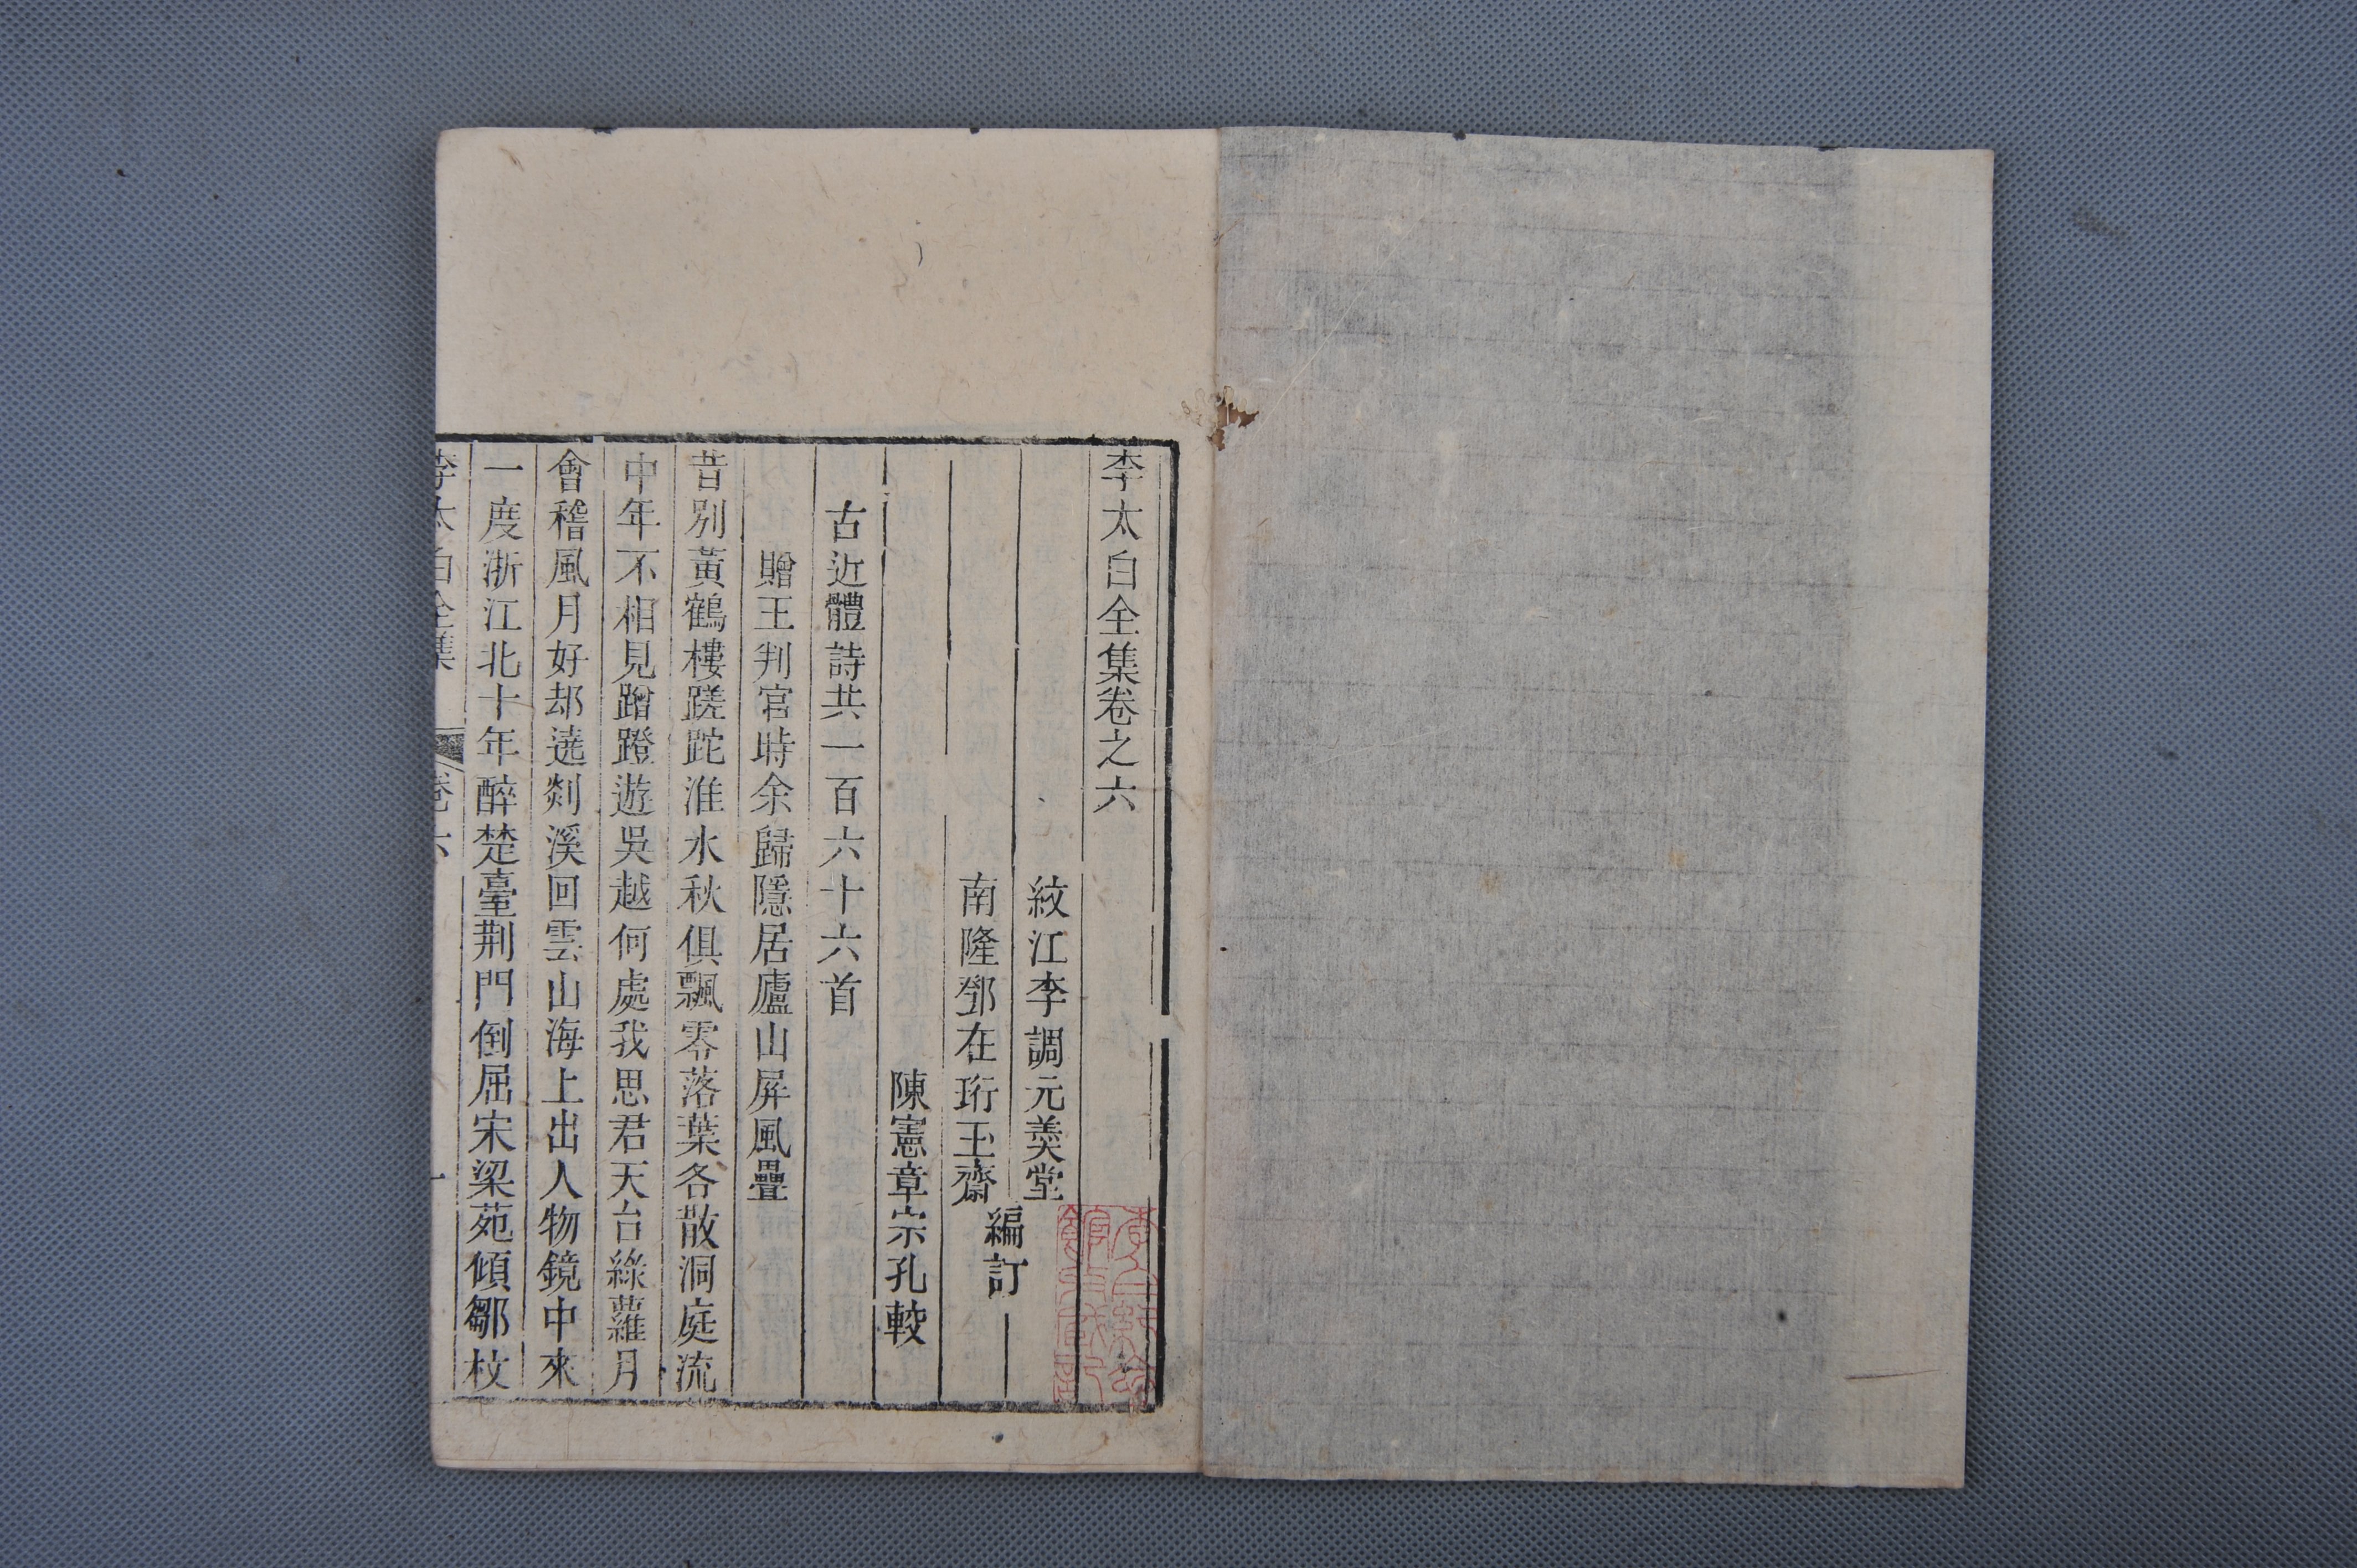 李太白全集卷之六
紋江李調元羮堂
南隆鄧在珩玉齋
編訂
陳憲章宗孔較
古近體詩共一百六十六首
贈王判官時余歸隱居廬山屏風疊
昔別黃鶴樓蹉跎淮水秋俱飄零落葉各散洞庭流
中年不相見蹭蹬遊吳越何處我思君天台綠蘿月
會稽風月好却遶剡溪回雲山海上出人物鏡中來
一度浙江北十年醉楚臺荆門倒屈宋梁苑傾鄒枚
李太白全集 卷六 一